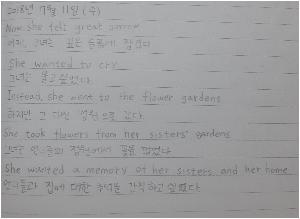 2018년 7월 11일 (수)
Now she felt great sorrow
이제, 그녀는 깊은 슬픔에 잠겼다
She wanted to cry
그녀는 울고싶었다.
Instead, she went to the flower gardens
하지만 그 대신 정원으로 갔다.
She took flowers from her sisters' gardens
그녀는 언니들의 정원에서 꽃을 꺾었다.
She wanted a memory of her sisters and her home
언니들과 집에 대한 추억을 간직하고 싶었다.